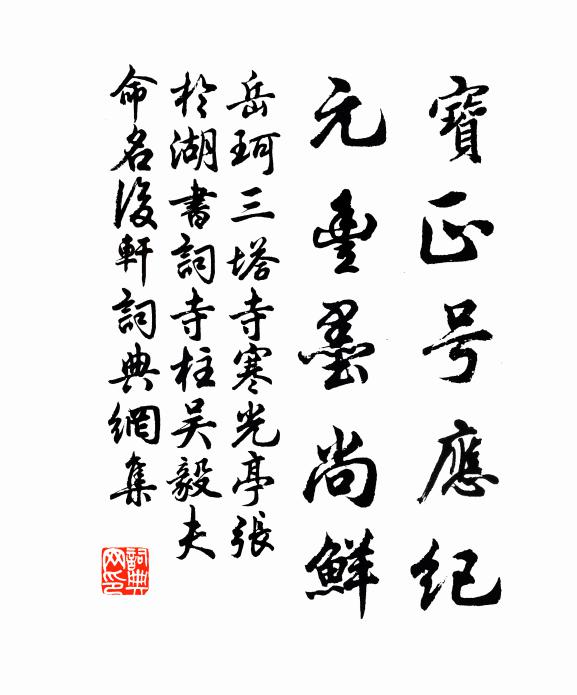 寶正号應紀
元豊墨尚鮮
岳珂三塔寺寒光亭張
於湖書詞寺柱吴毅夫
命名後軒詞典網集
詞典
网印